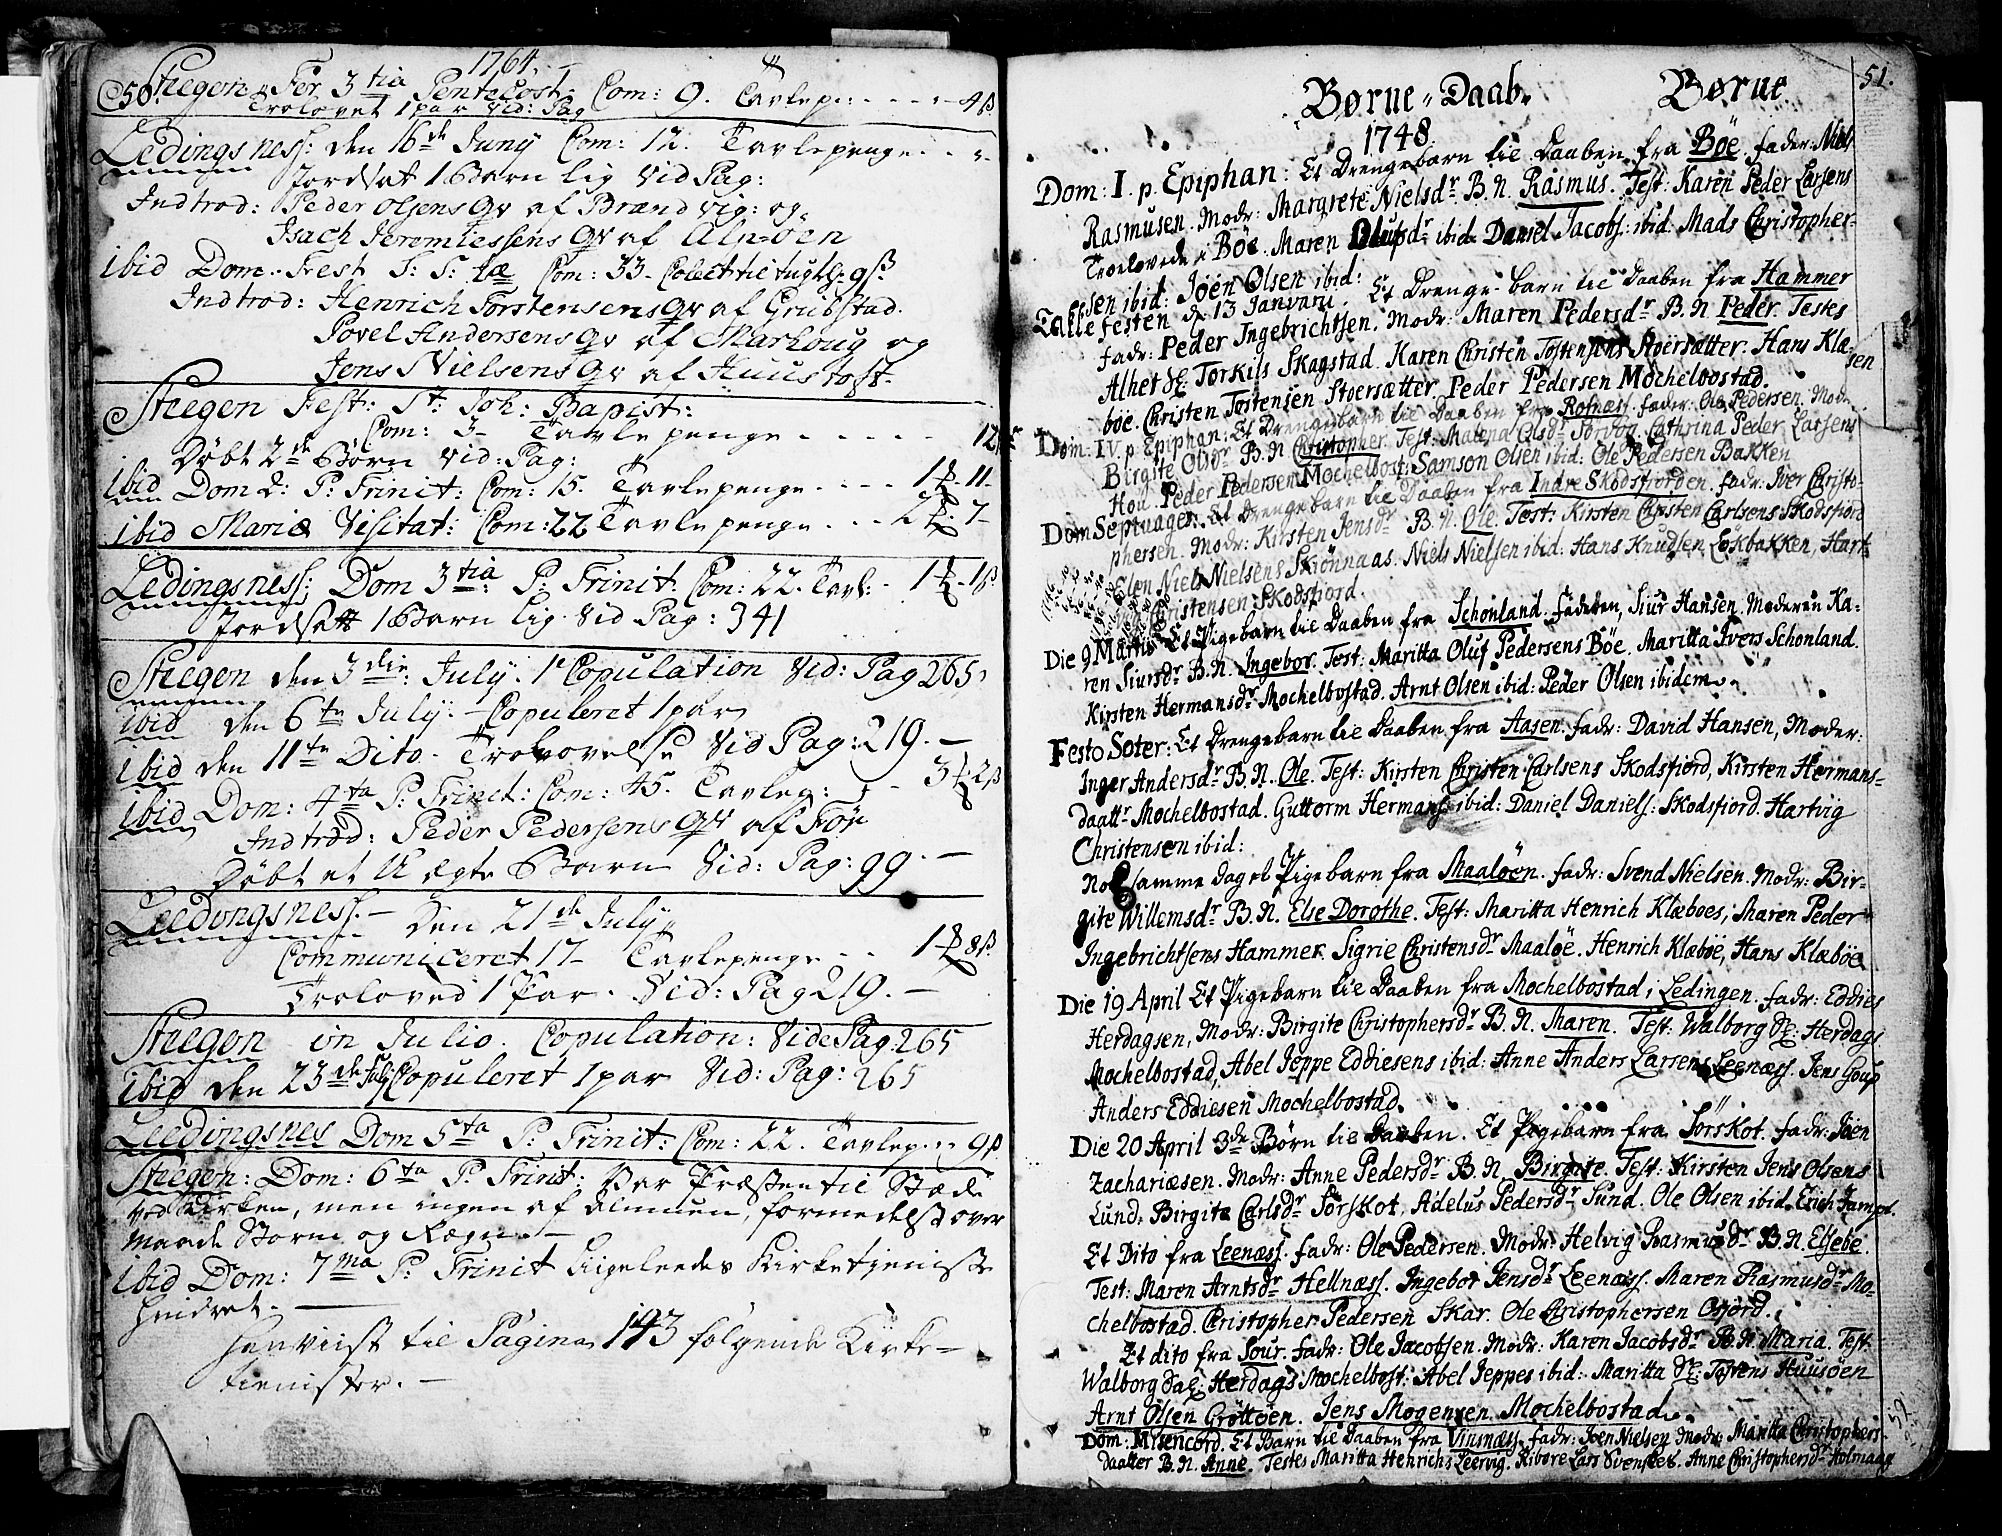 1764.
50. Stegen Fer. 3 tia Pentecost. Com: 9. Tavlep: - - - - 4 ß
Trolovet 1 par Vid: Pag
Ledingsness: den 16 de Juny Com: 12. Tavlepenge - - -
Jordsat 1 Barn lig Vid Pag:
Indtrod: Peder Olsens Qv af Brændvig: og
Isach Jeremiessens Qv af Alpøen
ibid Dom. Fest S: S: tæ Com: 33 - Colect til tugth. 9 ß
Indtrod: Henrich Torstensens Qv af Grübstad.
Povel Andersens Qv af Marhoug og
Jens Nielsens Qv af Huustoft.
Stegen Fest: St: Joh: Bapist:
Com: 3 - Tavlepenge - - - - - 12
Döbt 2 de Börn Vid: Pag:
ibid Dom 2: P: Trinit: Com: 15. Tavlepenge - - - - 1 - 11 -
ibid Mariæ Visitat: Com: 22 Tavlepenge - - - 2 - 7 -
Ledingsness: Dom 3 tia: P: Trinit: Com: 22. Tavl: - 1 - 1 ß
Jordsatt 1 Barn lig Vid Pag: 341
Stegen den 3 die July. 1 Copulation Vid: Pag 265
ibid den 6 te July. - Copuleret 1 par
ibid den 11 te Dito. Trolovelse Vid Pag: 219. -
ibid Dom: 4 ta P: Trinit: Com: 45. Tavlep: - - 3 - 2 ß
Indtrod: Peder Pedersens Qv af För
Döbt et Uægte Barn Vid: Pag: 99. -
Leedingsness. - Den 21 de July
Communiceret 17 - Tavlepenge - - 1 - 8 ß
Troloved 1 Par. Vid: Pag 219. -
Stegen in Julio. Copulation: Vide Pag: 265
ibid den 23 de July Copuleret 1 par Vid: Pag: 265
Leedingsnes Dom 5 ta P: Trinit: Com: 22. Tavlep: - - 9 ß
Stegen: Dom: 6 ta P. Trinit: Var Præsten til Stæde
ved Kirken, men ingen af Almuen, formedelst over
maade Storm og Regn. -
ibid Dom: 7 ma P: Trinit ligeleedes Kirketieniste
hindret. -
henviist til Pagina 143 følgende Kirke-
tienister. -
51.
Børne-Daab. Børne
1748
Dom: I. p. Epiphan: Et Drengebarn til Daaben fra Böe. fader: Niels
Rasmusen. Modr: Margrete Nielsdr B. N. Rasmus. Test: Karen Peder Larsens
Troelovede i Böe. Maren Olufsdr ibid. Daniel Jacobs: ibid. Mads Christopher-
sen ibid: Joen Olsen ibid:
Tallefesten d. 13 Januarii. Et Drengebarn til Daaben fra Hammer
fadr: Peder Ingebrichtsen. Modr: Maren Pedersdr B. N. Peder. Testes
Alhet Sl: Torkils Skagstad. Karen Christen Tostensens Stoersætter. Hans Klæ-
böe. Christen Tostensen Stoersætter. Peder Pedersen Mochelbostad.
Dom: IV. p. Epiphan: Et Drengebarn til Daaben fra Rosnæss. fader: Ole Pedersen. Modr
Birgite Olsdr B. N. Christopher. Test: Malena Olsdr Cathrina Peder Larsens
Hou. Peder Pedersen Mochelbost: Samson Olsen ibid: Ole Pedersen Bakken
Dom Septuages: Et Drengebarn til Daaben fra Indre Skodsfjorden. fadr: Iver Christo-
phersen. Modr: Kirsten Jensdr B. N. Ole. Test: Kirsten Christen Carlsens Skodsfiord
Elen Niels Nielsens Skiönnaas. Niels Nielsen ibid: Hans Knudsen Eokbakken, Hart-
Christensen Skodsfjord.
Die 9 Martii Et Pigebarn til Daaben fra Schonland. faderen, Siur Hansen. Moderen Ka-
ren Siursdr B. N. Ingebor. Test: Maritta Oluf Pedersens Böe. Maritta Ivers Schonland.
Kirsten Hermansdr Mochelbostad. Arnt Olsen ibid: Peder Olsen ibidem.
Festo Soter: Et Drengebarn til Daaben fra Aasen. fadr: David Hansen, Moder:
Inger Andersdr B. N. Ole. Test: Kirsten Christen Carlsens Skodsfiord, Kirsten Hermans-
daattr Mochelbostad. Guttorm Hermans ibid: Daniel Daniels: Skodsfiord. Hartvig
Christensen ibid:
Nok samme dag et Pigebarn fra Maalöen. fadr: Svend Nielsen. Modr: Bir-
gite Willemsdr B. N. Else Dorothe. Test: Maritta Henrich Klæboes, Maren Peder
Ingebrichtsens Hammer. Sigrie Christensdr Maalöe. Henrich Klæböe, Hans Klæböe
Die 19 April Et Pigebarn til Daaben fra Mochelbostad i Ledingen. fadr: Eddies
Herdagsen, Modr: Birgite Christophersdr B. N. Maren. Test: Walborg Sl: Herdags
Mochelbostad, Abel Jeppe Eddiesens ibid: Anne Anders Larsens Leenæss. Jens Goup
Anders Eddiesen Mochelbostad.
Die 20 April 3 de Börn til Daaben. Et Pigebarn fra Sörskot. fadr: Joen
Zachariæsen. Modr: Anne Pedersdr B. N. Birgite. Test: Kirsten Jens Olsens
Lund. Birgita Carlsdr Sörskot. Adelus Pedersdr Sund. Ole Olsen ibid. Erich Jampt.
Et Dito fra Leenæss. fadr: Ole Pedersen. Modr: Helvig Rasmusdr B. N. Elsebe.
Test: Maren Arntsdr Hellnæss. Ingebor Jensdr Leenæss. Maren Rasmusdr Mo-
chelbostad. Christopher Pedersen Skar. Ole Christophersen Offiord.
Et dito fra Sour. fadr: Ole Jacobsen. Modr: Karen Jacobsdr B. N. Maria. Test:
Walborg Sal: Herdags Mochelbost: Abel Jeppes ibid: Maritta Sl: Tostens Huusöen
Arnt Olsen Gröttöen. Jens Mogensen Mochelbostad.
Dom: Misericord. Et Barn til Daaben fra Vinsnæss. fadr: Joen Nielsen Modr: Maritta Christophers-
daatter B. N. Anne. Testes Maritta Henrichs Leervig. Kibore Lars Svenskes. Anne Christophersdr Holmaag